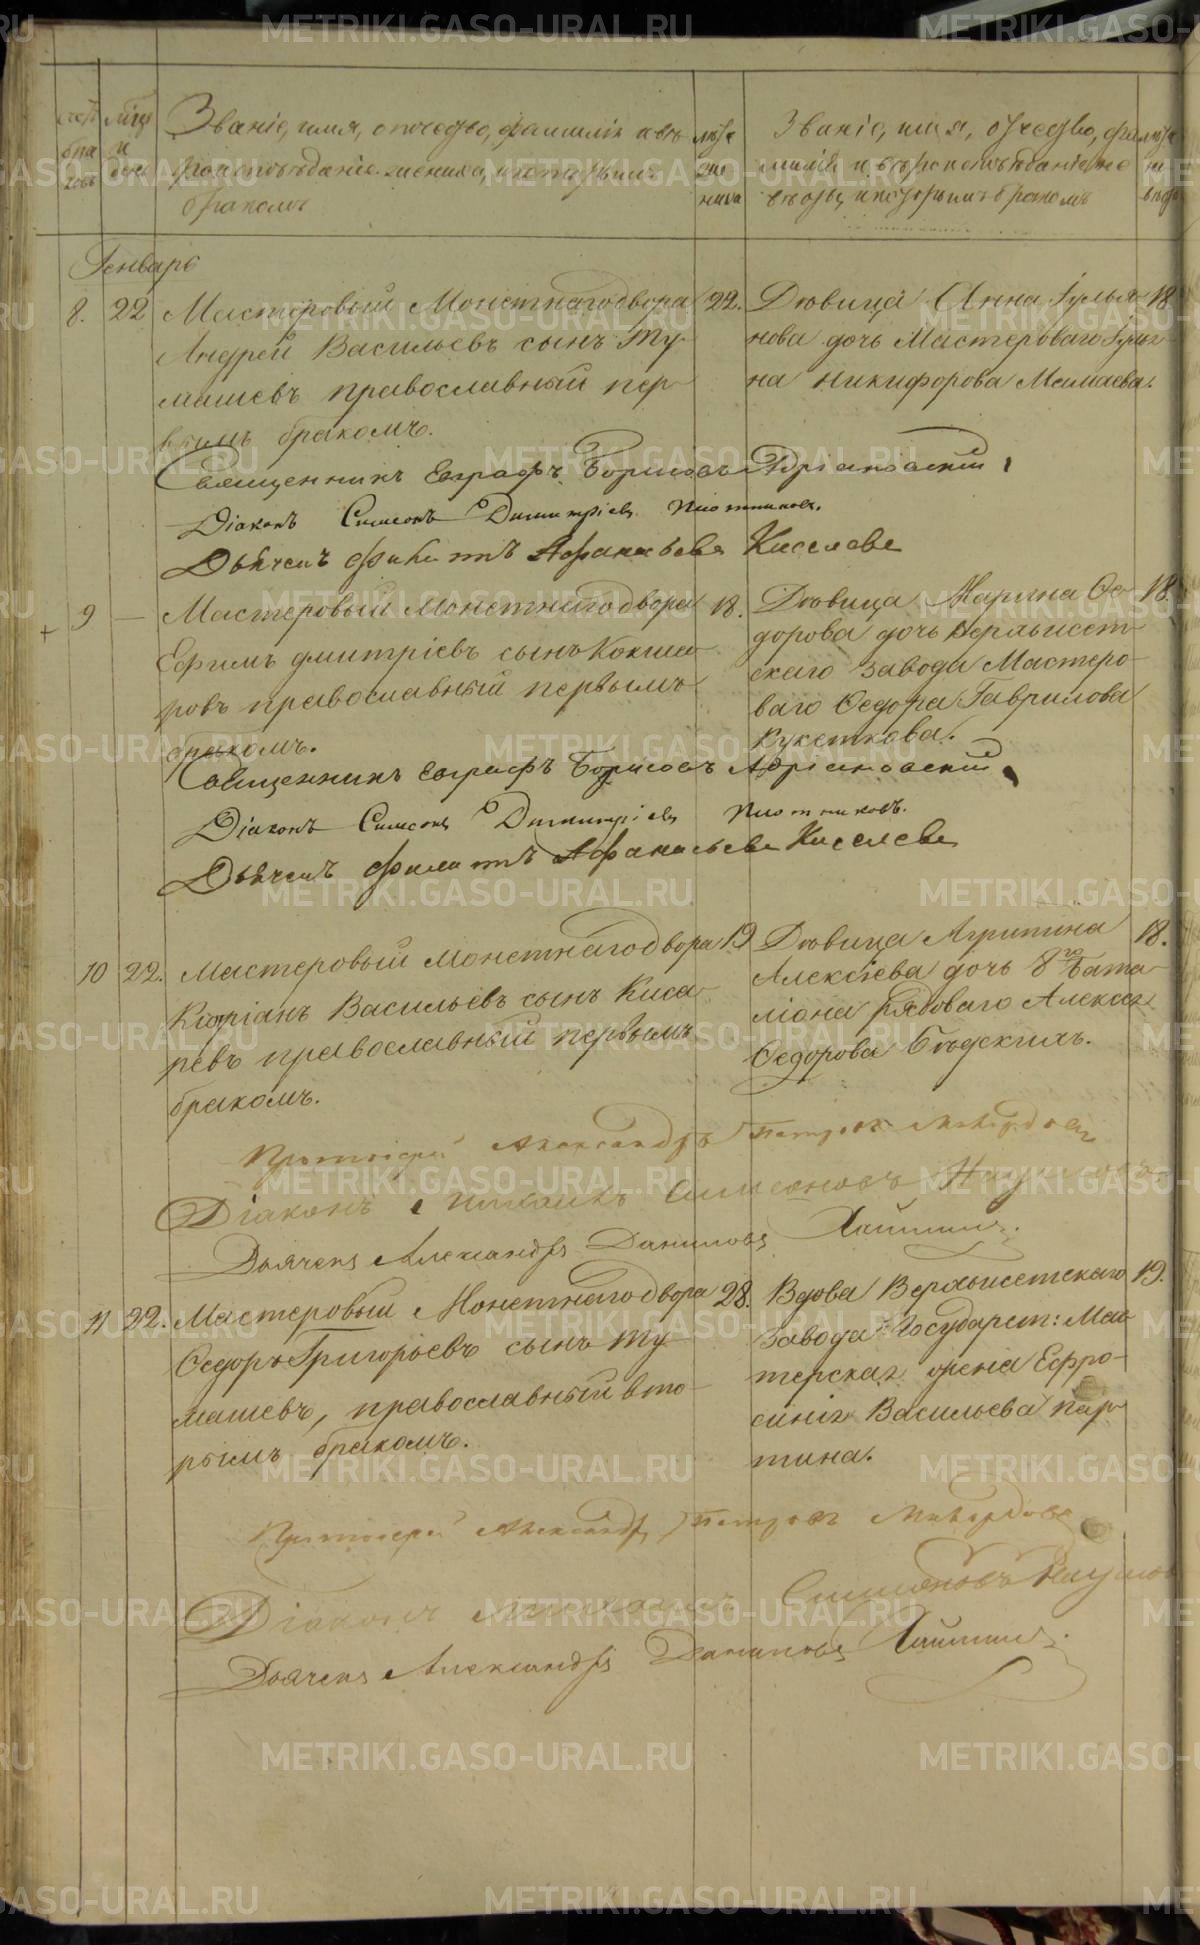 счетъ браковъ
мѣсяцъ и день
Званіе, имя, отечество, фамилія и вѣ-
роисповѣданіе жениха, и которымъ
бракомъ
лѣта
же
ниха
Званіе, имя, отчество, фа-
милія и вѣроисповѣданіе не-
вѣсты, и которымъ бракомъ
лѣта
невѣс
Генварь
8. 22 Мастеровый Монетнаго двора
Андрей Васильевъ сынъ Ту-
машевъ православный пер-
вымъ бракомъ.
22.
Дѣвица Анна Гулья-
нова дочь Мастероваго
на Никифорова Мамаева.
18
Священникъ Евграфъ Борисовъ Адріановскій
Діаконъ Симеонъ Димитріевъ Плотниковъ.
Дьячекъ Филатъ Афанасьевъ Киселевъ
9 — Мастеровый Монетнаго двора
Ефимъ Дмитріевъ сынъ Кокша-
ровъ православный первымъ
бракомъ.
18.
Дѣвица Марина Ѳе-
дорова дочь Верхъисет-
скаго завода Мастеро-
ваго Ѳедора Гаврилова
Кукеткова.
18.
Священникъ Евграфъ Борисовъ Адріановскій
Діаконъ Симеонъ Димитріевъ Плотниковъ.
Дьячекъ Филатъ Афанасьевъ Киселевъ
10 22. Мастеровый Монетнаго двора
Кипріанъ Васильевъ сынъ Киса-
ревъ православный первымъ
бракомъ.
19
Дѣвица Агрипина
Алексіева дочь 8го Бата-
ліона рядоваго Алексѣя
Ѳедорова Бѣдскихъ.
18.
Протоіерей Александръ Петровъ
Діаконъ Михаилъ Симеоновъ Наумовъ
Дьячекъ Александръ Даниловъ
11 22. Мастеровый Монетнаго двора
Ѳедоръ Григорьевъ сынъ Ту-
машевъ, православный вто-
рымъ бракомъ.
28.
Вдова Верхъисетскаго
завода Государст: Мас-
терская жена Ефро-
синія Васильева Пар-
тина.
19.
Протоіерей Александръ Петровъ
Діаконъ Михаилъ Симеоновъ Наумовъ
Дьячекъ Александръ Даниловъ
METRIKI.GASO-URAL.RU